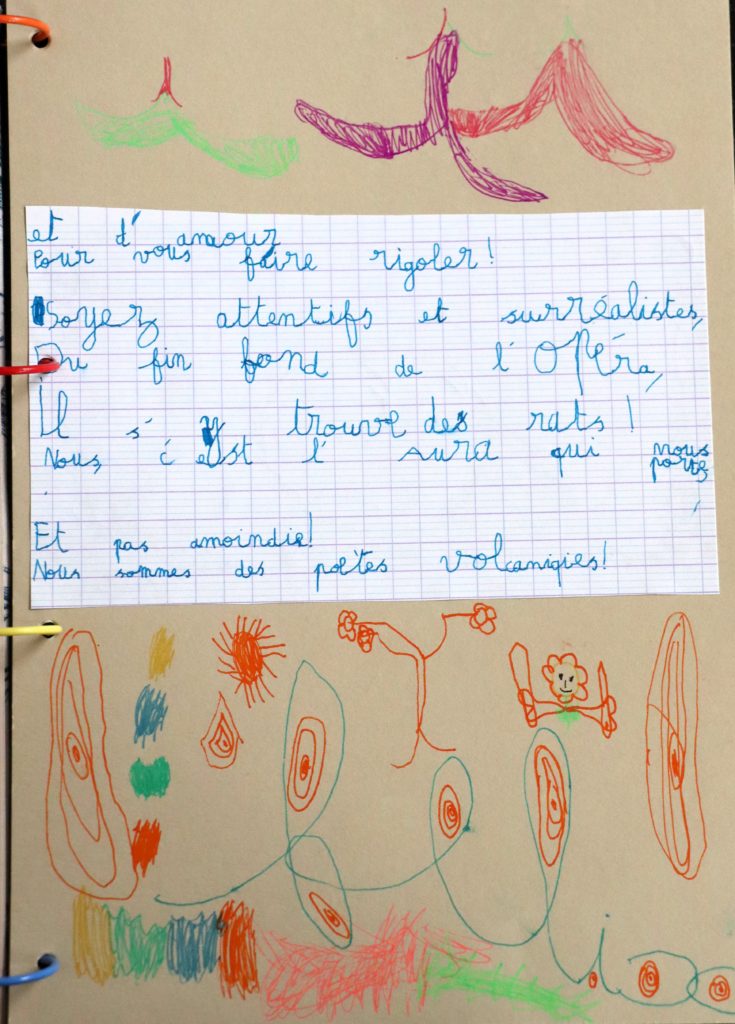 et d'amour
Pour vous faire rigoler !
Soyez attentifs et surréalistes,
Du fin fond de l'OPéra,
Il s'y trouve des rats !
Nous, c'est l'aura qui nous
porte,
Et pas amoindie!
Nous sommes des poètes volcaniques!